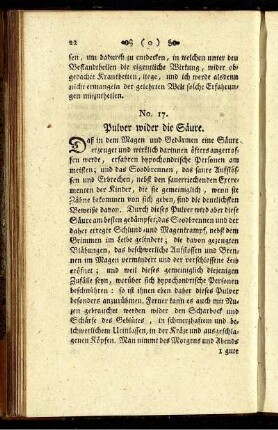 22 ( o )
sen, um dadurch zu entdecken, in welchen unter den
Bestandtheilen die eigentliche Wirkung, wider ob-
gedachte Krankheiten, liege, und ich werde alsdenn
nicht ermangeln der gelehrten Welt solche Erfahrun-
gen mitzutheilen.
No. 17.
Pulver wider die Säure.
Daß in dem Magen und Gedärmen eine Säure
erzeuget und wirklich darinnen öfters angetrof-
fen werde, erfahren hypochondrische Personen am
meisten; und das Soodbrennen, das saure Aufstos-
sen und Erbrechen, nebst den sauerriechenden Excre-
menten der Kinder, die sie gemeiniglich, wenn sie
Zähne bekommen von sich geben, sind die deutlichsten
Beweise davon. Durch dieses Pulver wird aber diese
Säure am besten gedämpfet; das Soodbrennen und der
daher erregte Schlund- und Magenkrampf, nebst dem
Grimmen im Leibe gelindert; die davon gezeugten
Blähungen, das beschwerliche Aufstossen und Bren-
nen im Magen vermindert und der verschlossene Leib
eröfnet; und weil dieses gemeiniglich diejenigen
Zufälle seyn, worüber sich hypochondrische Personen
beschwähren: so ist ihnen eben daher dieses Pulver
besonders anzurühmen. Ferner kann es auch mit Nu-
zen gebrauchet werden wider den Scharbock und
Schärfe des Geblütes, in schmerzhaftem und be-
schwerlichem Urinlassen, in der Kräze und ausgeschla-
genen Köpfen. Man nimmt des Morgens und Abends
1 gute